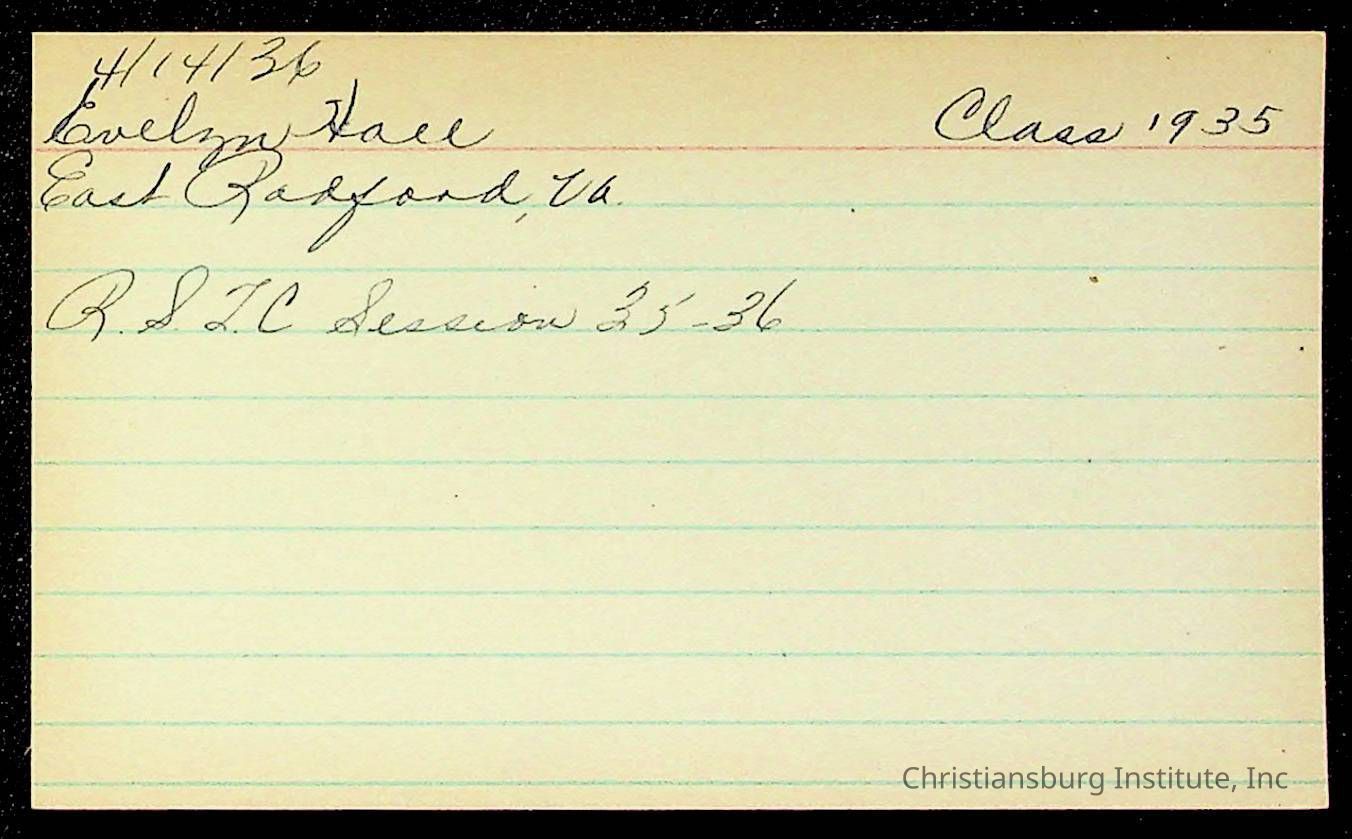 4/14/36
Evelyn Hall Class 1935
East Radford, Va.
R. S. T. C Session 35-36
Christiansburg Institute, Inc